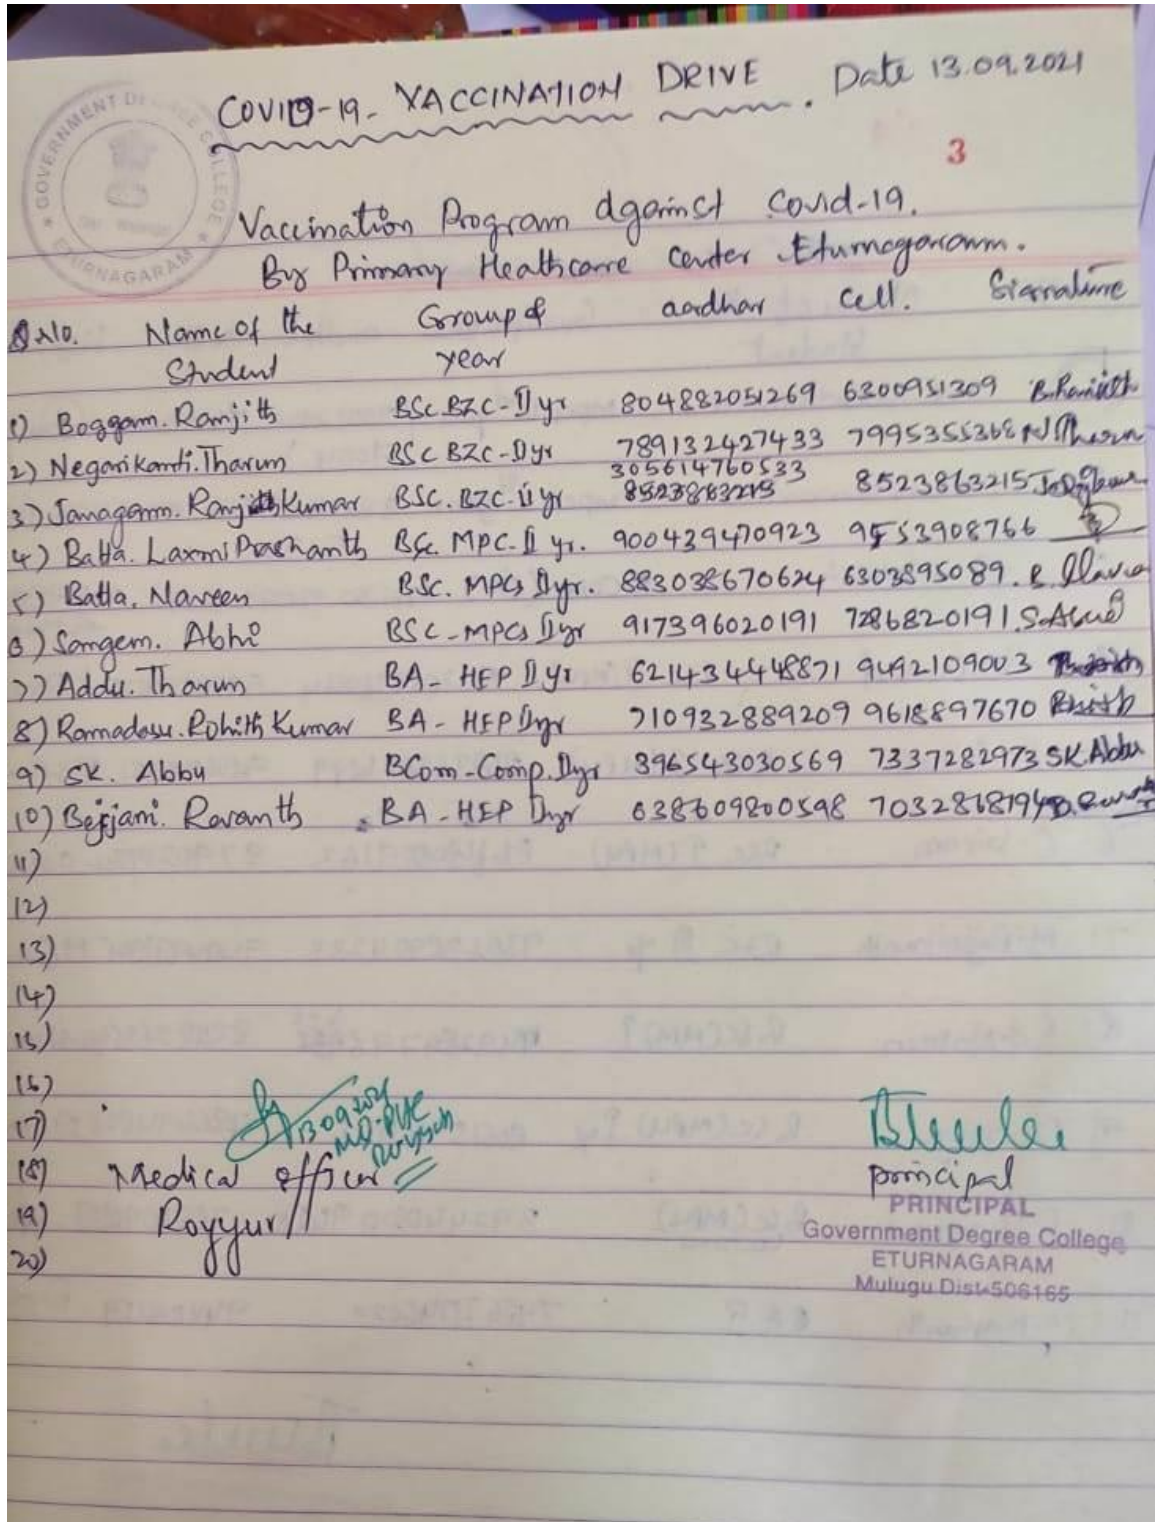 GOVERNMENT DEGREE COLLEGE
ETURNAGARAM
COVID-19- VACCINATION DRIVE. Date 13.09.2021
3
Vaccination Program against Covid-19.
By Primary Healthcare Center Eturnagaram.
S.No. Name of the Group & aadhar Cell. Signature
Student year
1) Boggam. Ranjith BSC BZC-II yr 804882051269 6300951309 B.Ranjith
2) Negarikanti. Tharun BSC BZC-II yr 789132427433 7995355368 N Tharun
305614760533
3) Janagam. Ranjith Kumar BSC. BZC-II yr 8523863215 8523863215
4) Batta. Laxmi Prashanth BSc. MPC-II yr. 900439470923 9553908766
5) Batta. Naveen BSC. MPCs II yr. 883038670624 6303895089.
6) Sangem. Abhi BSC-MPCs II yr 917396020191 7286820191
7) Addu. Tharun BA- HEP II yr 621434448871 9492109003
8) Ramadasu. Rohith Kumar BA- HEP II yr 710932889209 9618897670
9) SK. Abbu BCom-Comp. II yr 396543030569 7337282973 SK Abbu
10) Bejjani. Revanth BA-HEP II yr 638609800598 7032868194
11)
12)
13)
14)
15)
16)
17)
18) Medical officer principal
19) Royyur
20)
13.09.2021
PRINCIPAL
Government Degree College
ETURNAGARAM
Mulugu Dist-506165